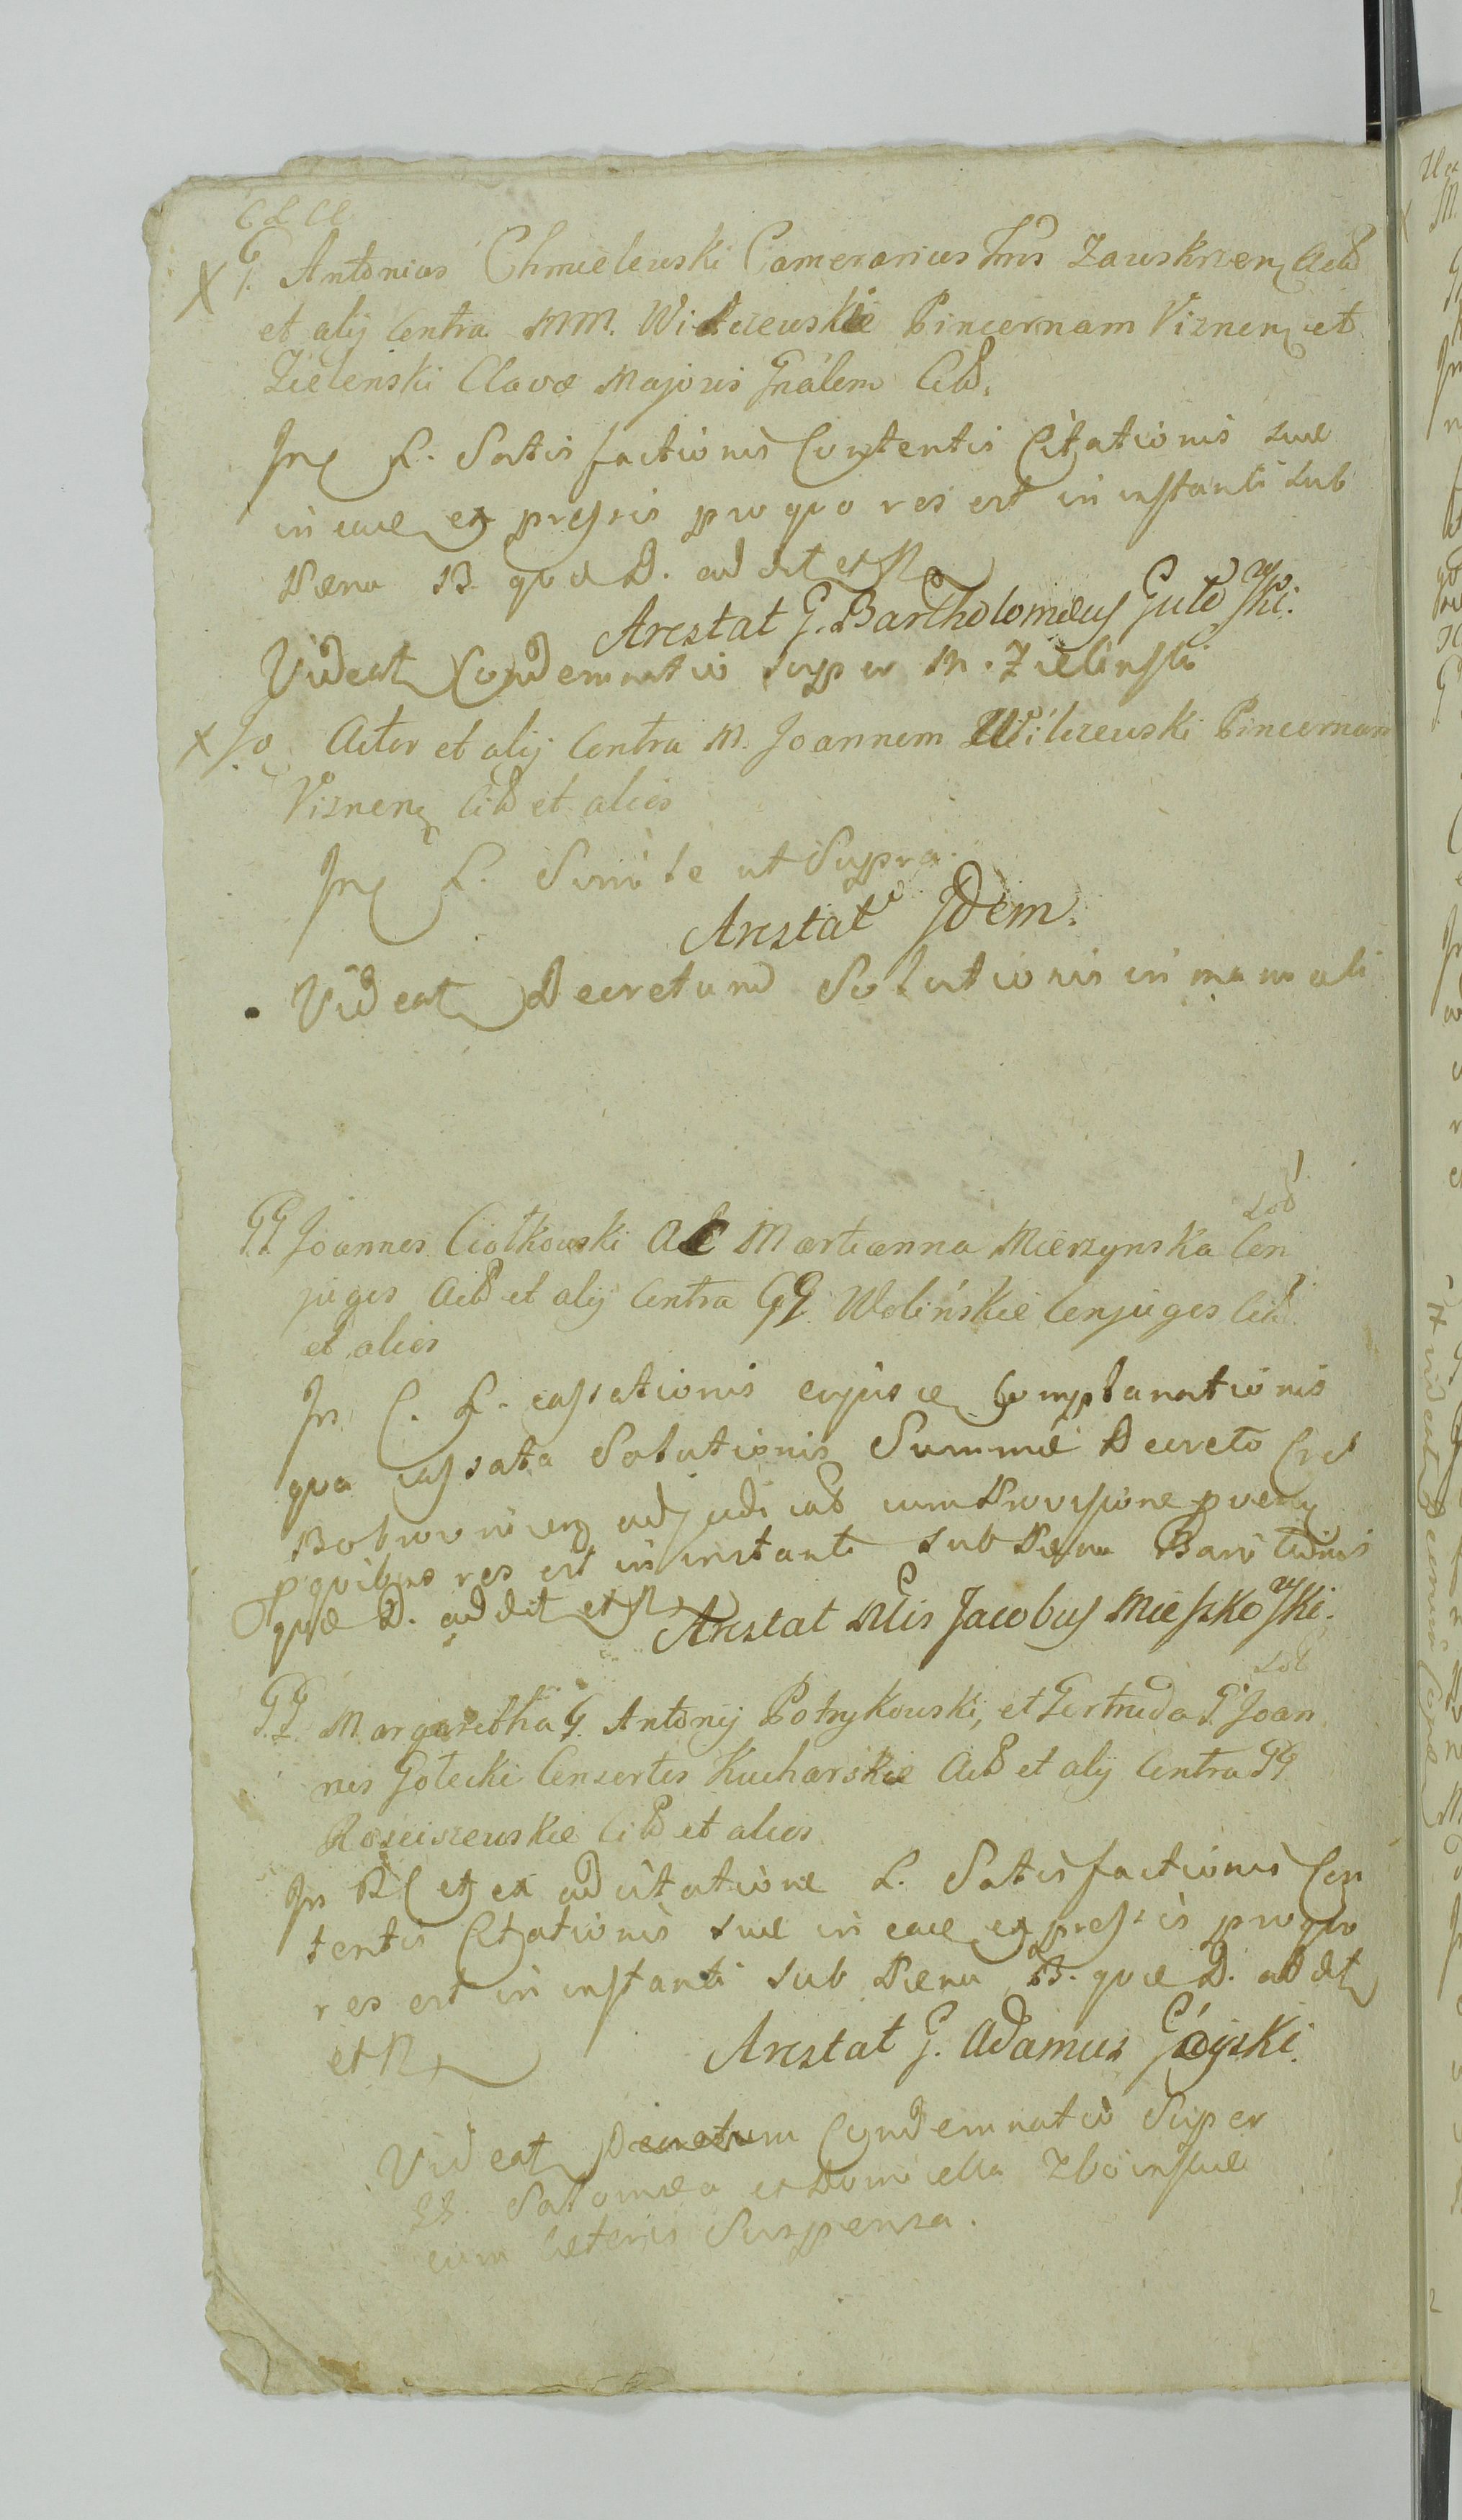 G. Antonius Chmielewski Camerarius Trrs Zawskrzen Actd
et alij Contra MM. Wilczewskie Pincernam Viznen et
Zielenski Clavæ Majoris Gnâlem Citd.
In L. Satisfactionis Contentis Citationis suæ
in eaue expressis pro quo res est in instanti sub
Pæna B. quæ D. addit et N
Arestat G. Bartholomæus Guto wski.
Videat Condemnatio super M. Zielinski
X Jo Actor et alij Contra M. Joannem Wilczewski Pincernam
Viznen Citd et alios
In L. Simile ut Supra.
Arestat Idem.
Videat Decretum Solutionis in manuali
GG Joannes Ciołkowski Ac Martianna Mierzynska Con
juges Actd et alij Contra GG Wolińskie Conjuges Citd
et alios
In C. L. cassationis ejusce Complanationis
qua cassata Solutionis Summæ Decreto
Bobrownicen adjudicat cum Provisione
p quibus res est in instanti sub Pæna Banitionis
quæ D. addit et N
Arestat Nlis Jacobus Mieszko wski.
GG Margaretha G. Antonij Potrykowski, et Gertruda G. Joan
nis Gołecki Consortes Kucharskie Actd et alij Contra GG
Rościszewskie Citd et alios
In et ex adcitatione L. Satisfactionis Con
tentis Citationis suæ in eaue expressis pro quo
res est in instanti sub Pæna B. quæ D. addit
et N
Arestat G. Adamus Góyski.
Videat Decretum Condemnatio Super
Salomea et Domicella Zboinskie
cum Cæteris Suspensa.